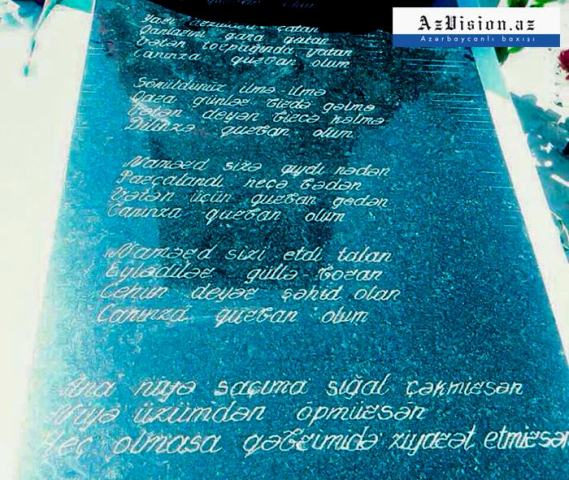 AzVision.az
Azərbaycanlı baxışı
qurban olum
çatan
Qanlarını qara qatan
Vətən torpağında yatan
Canınza qurban olum
ilmə-ilmə
Qara günlər bizdə gəlmə
Vətən deyən bircə kəlmə
Dilinzə qurban olum
Namərd sizə qıydı nədən
Parçalandı neçə bədən
Vətən üçün qurban gedən
Canınza qurban olum
Namərd sizi etdi talan
Eylədilər güllə-boran
Ceyhun deyər şəhid olan
Canınza qurban olum
Ana niyə saçıma sığal çəkmirsən
Niyə üzümdən öpmürsən
Heç olmasa qəbrimidə ziyarət etmirsən